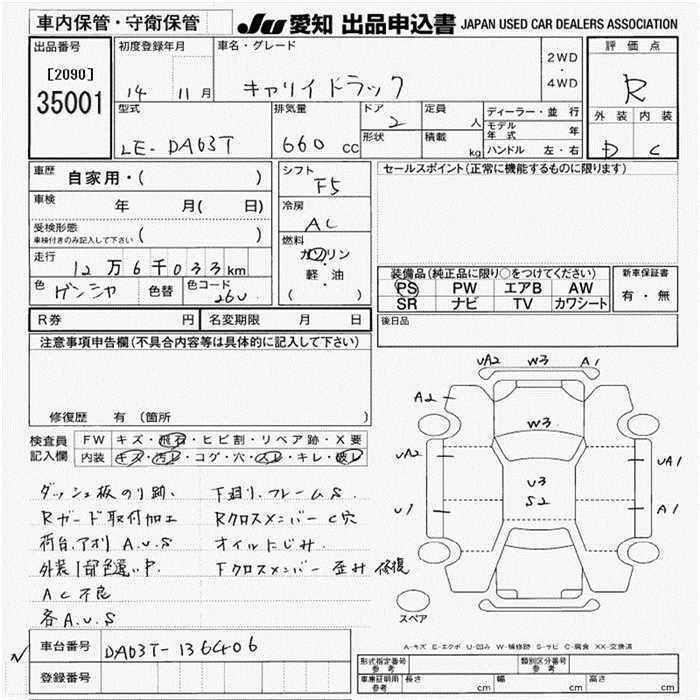 車内保管・守衛保管
JU 愛知 出品申込書 JAPAN USED CAR DEALERS ASSOCIATION
出品番号
[2090]
35001
初度登録年月
14 11月
車名・グレード
キャリイトラック
2WD
・
4WD
評価点
R
外装 内装
D C
型式
LE-DA63T
排気量
660cc
ドア
2
形状
定員
人
積載
kg
ディーラー・並行
モデル年式 年
ハンドル 左・右
車歴 自家用・( )
車検 年 月( 日)
受検形態
車検付きのみ記入して下さい ( )
走行
12万6千033km
色 ゲンシヤ 色替 色コード 26U
シフト
F5
冷房
AC
燃料
ガソリン
・
軽・油
( )
セールスポイント(正常に機能するものに限ります)
装備品(純正品に限り○をつけてください)
PS PW エアB AW
SR ナビ TV カワシート
新車保証書
有・無
R券 円 名変期限 月 日
後日品
注意事項申告欄(不具合内容等は具体的に記入して下さい)
修復歴 有(箇所 )
検査員記入欄
FW キズ・飛石・ヒビ割・リペア跡・X要
内装 キズ・汚レ・コゲ・穴・スレ・キレ・破レ
ダッシュ板のり跡、
Rガード取付加工
荷台.アオリ A.U.S
外装1部色違い.P.
AC不良
各A.U.S
下廻り.フレームS.
Rクロスメンバー C穴
オイルにじみ.
Fクロスメンバー 歪み 修復
UA2 W3 A1
A2
W3
UA2
U3
S2
UA1
U1
A1
スペア
A-キズ E-エクボ U-凹み W-補修跡 S-サビ C-腐食 XX-交換済
N
車台番号 DA63T-136406
登録番号
形式指定番号
参考
類別区分番号
参考
車庫証明用
参考
長さ cm 幅 cm 高さ cm